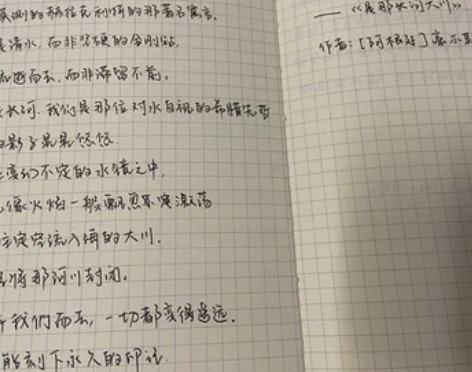 莫测的赫拉克利特的那著名寓言。
是清水，而非坚硬的金刚钻，
流逝而去，而非滞留不前。
长河，我们是那位对水自视的希腊先哲
的影子晃晃悠悠
变幻不定的水镜之中，
像火焰一般飘忽不定激荡
注定空流入海的大川。
将那河川封闭。
我们而去，一切都变得遥远。
能刻下永久的印记
——《是那长河大川》
作者：[阿根廷] 豪尔